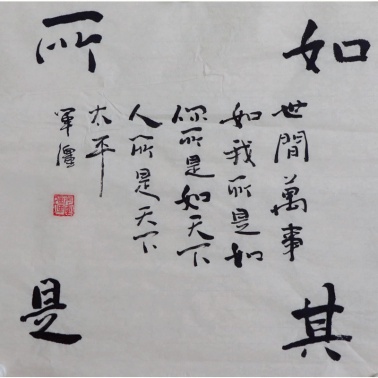 如其
世間萬事
如我所是如
你所是如天下
人所是天下
太平
所是